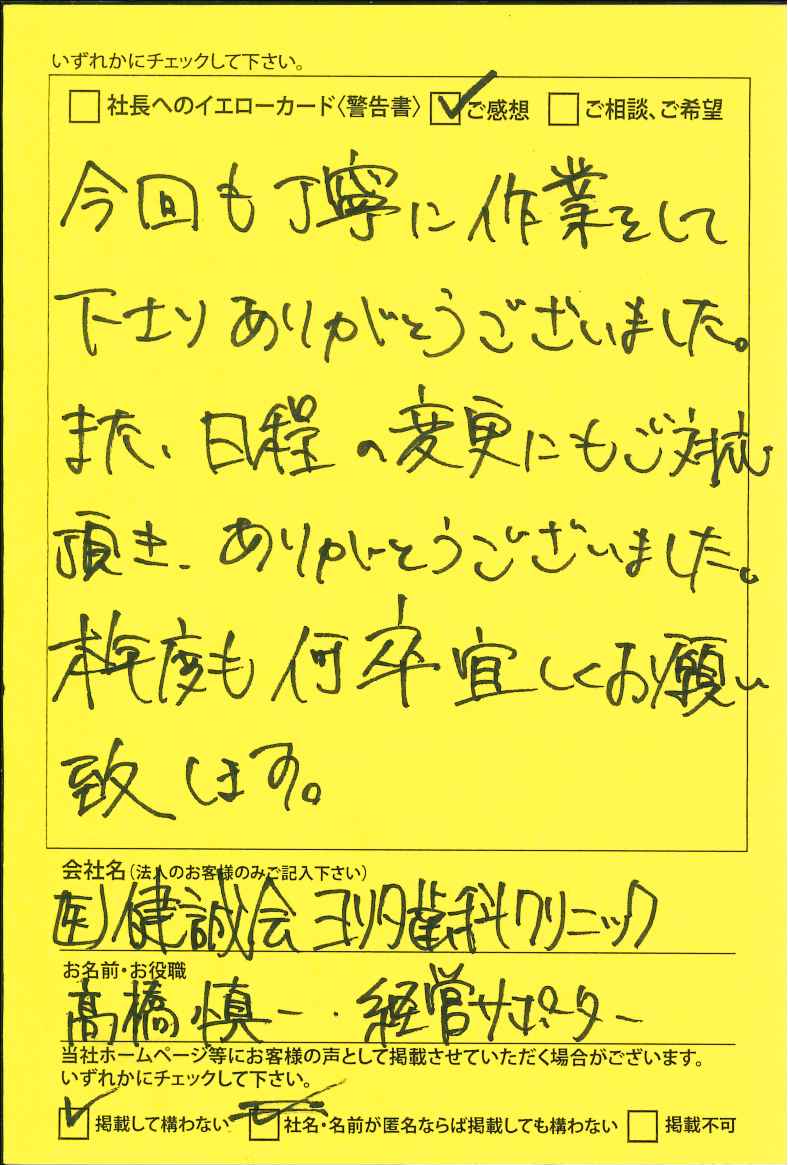 いずれかにチェックして下さい。
社長へのイエローカード〈警告書〉 ご感想 ご相談、ご希望
今回も丁寧に作業をして
下さり ありがとうございました。
また、日程の変更にもご対応
頂き、ありがとうございました。
来年度も何卒宜しくお願い
致します。
会社名(法人のお客様のみご記入下さい)
医)健誠会 ヨリタ歯科クリニック
お名前・お役職
高橋慎一・経営サポーター
当社ホームページ等にお客様の声として掲載させていただく場合がございます。
いずれかにチェックして下さい。
掲載して構わない 社名・名前が匿名ならば掲載しても構わない 掲載不可